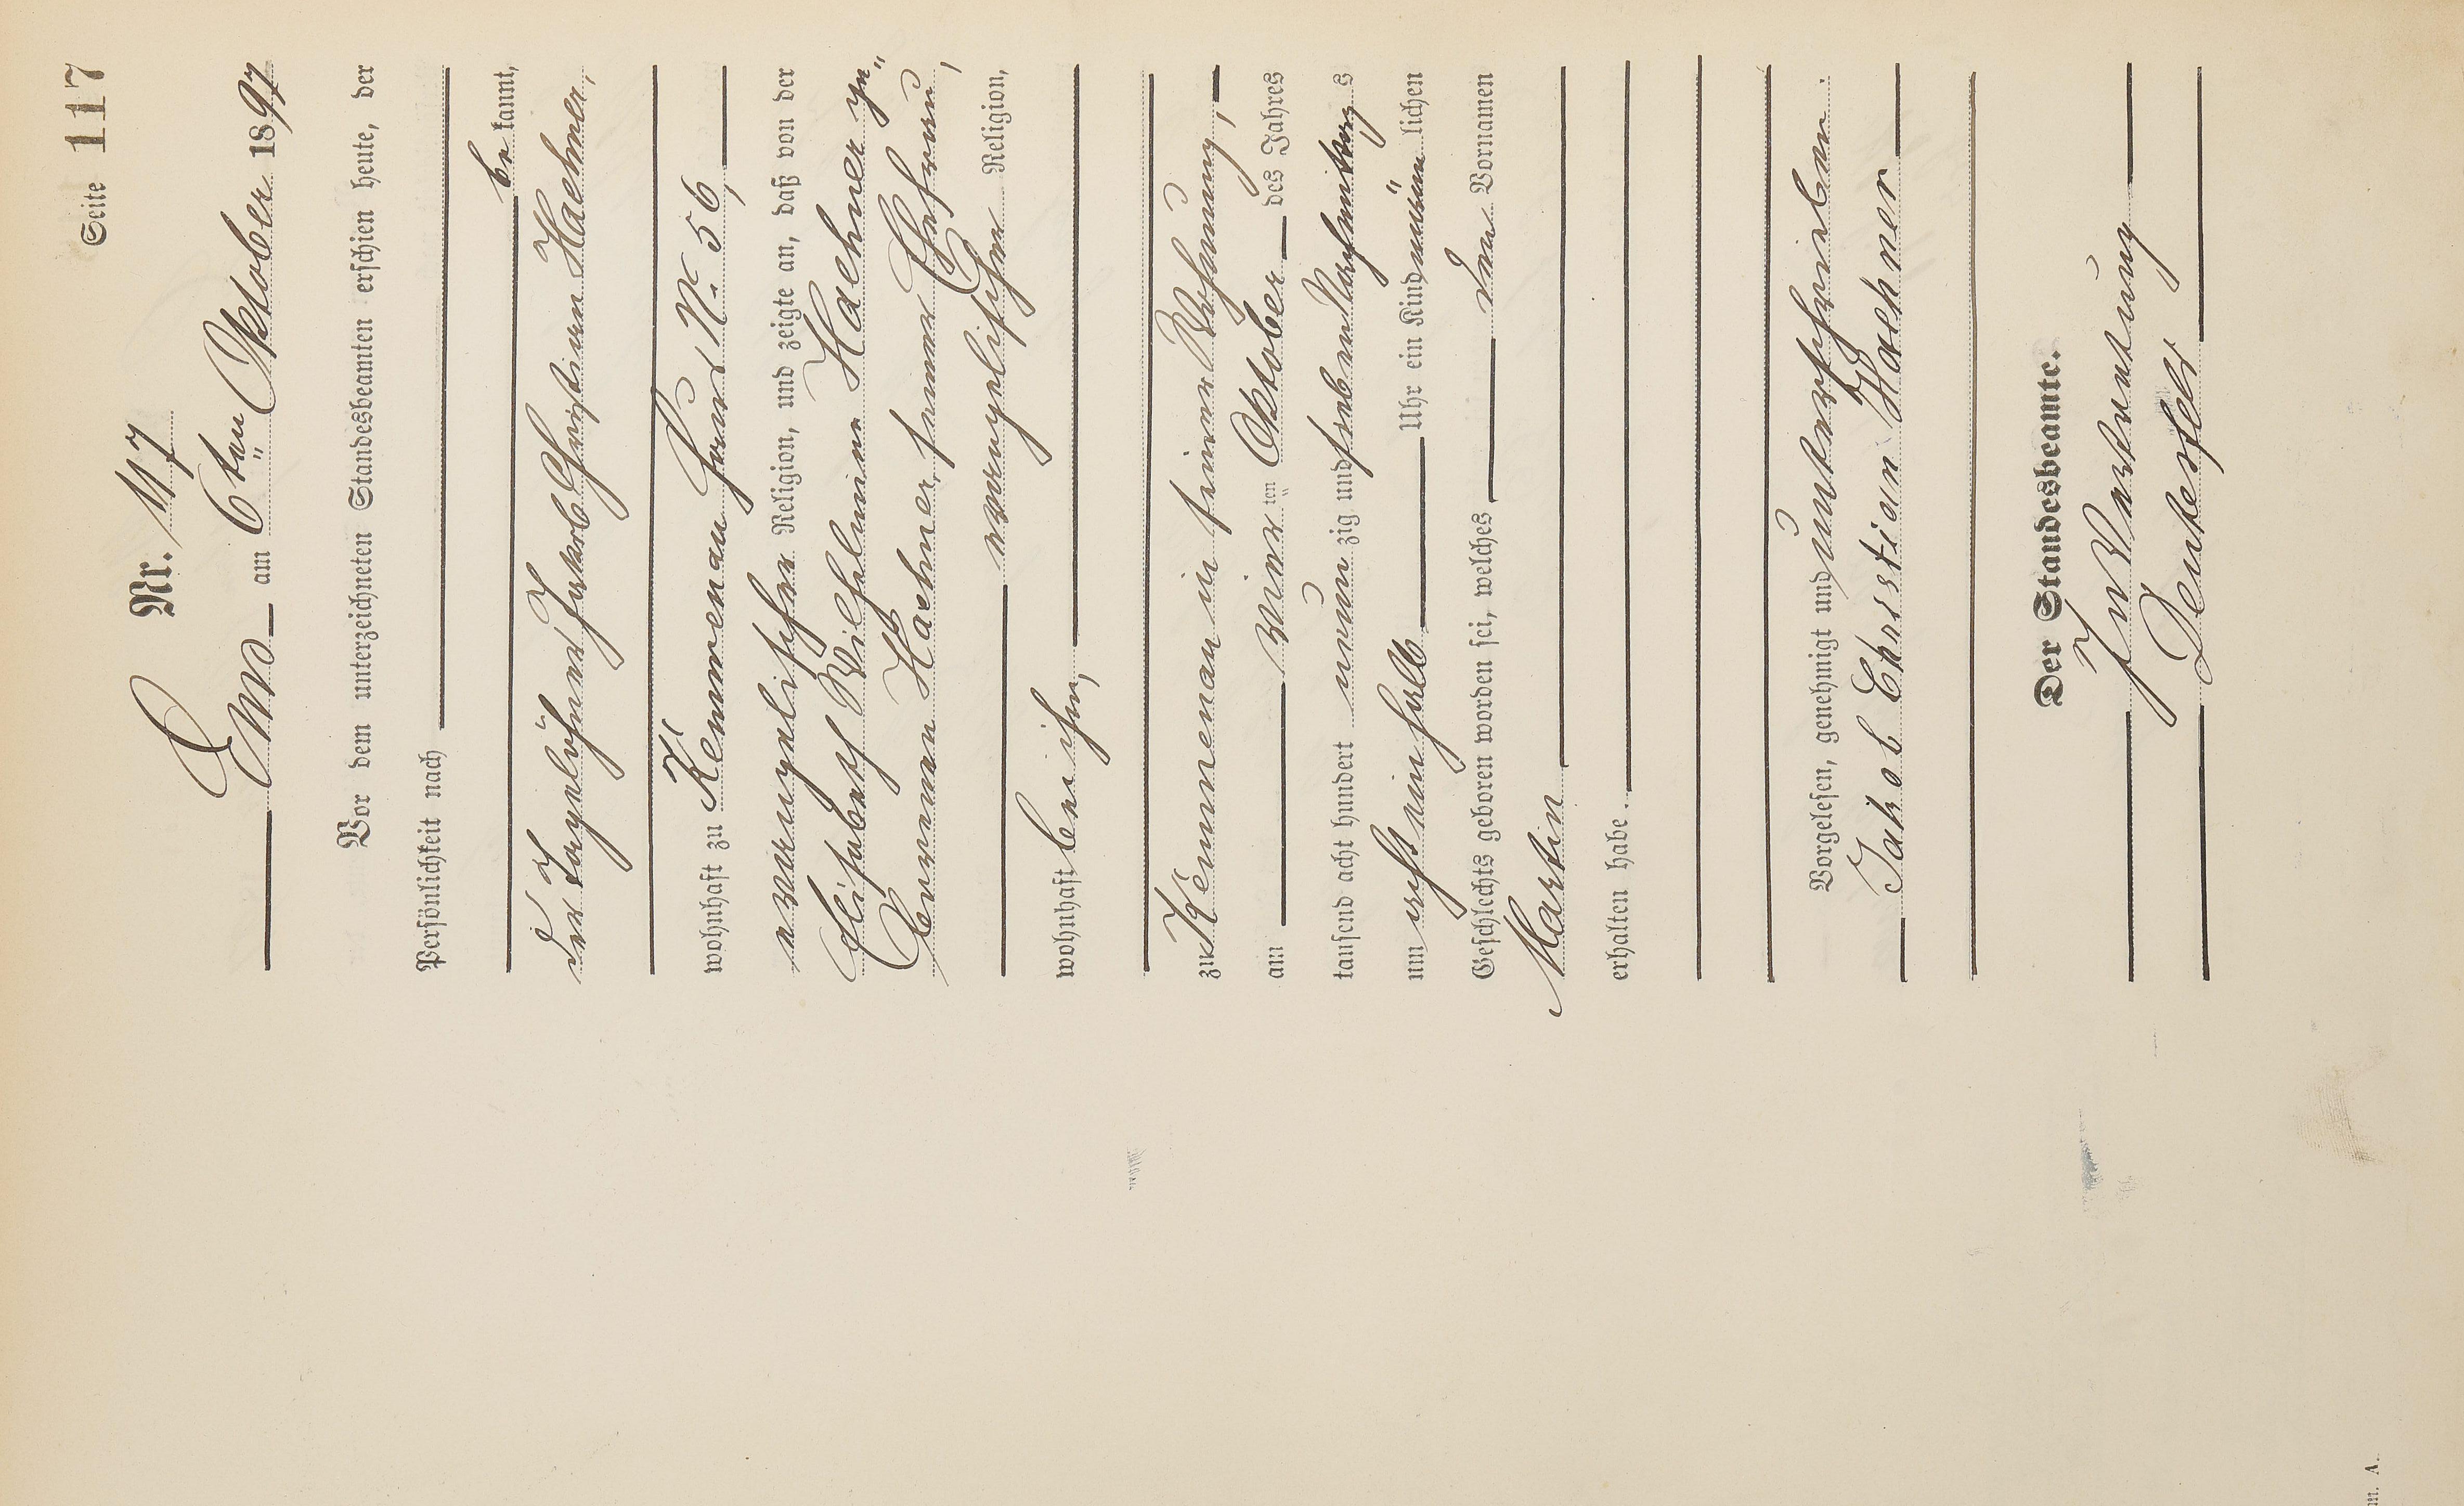 Seite 117
Nr. 117
Ems am 6ten Oktober 1897
Vor dem unterzeichneten Standesbeamten erschien heute, der
Persönlichkeit nach
be kannt,
der Tagelöhner Jakob Christian Haehner,
wohnhaft zu Kemmenau Haus No 56,
evangelischer Religion, und zeigte an, daß von der
Elisabeth Wilhelmine Haehner ge-
borenen Haehner, seiner Ehefrau,
evangelischer Religion,
wohnhaft bei ihm,
zu Kemmenau in seiner Wohnung,
am vier ten Oktober des Jahres
tausend acht hundert neun zig und sieben Nachmittags
um acht ein halb Uhr ein Kind männ lichen
Geschlechts geboren worden sei, welches den Vornamen
Martin
erhalten habe.
Vorgelesen, genehmigt und unterschrieben.
Jakob Christian Haehner
Der Standesbeamte.
In Vertretung
m. A.